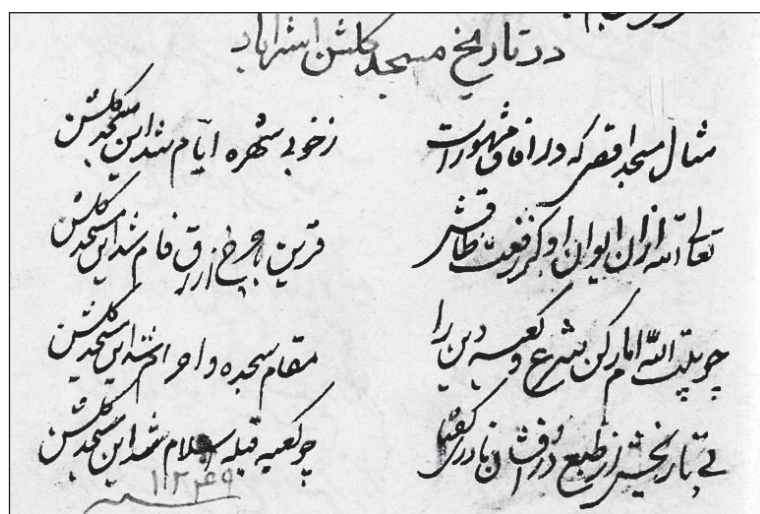 در تاریخ مسجد گلشن استراباد
مثال مسجد اقصی که در افاق مشهور است ز خوبی شهره ایام شد این مسجد گلشن
تعالی الله از آن ایوان او کز رفعت طاقش قرین چرخ ازرق فام شد این مسجد گلشن
چو بیت الله امام رکن شرع و کعبه دین را مقام سجده و احرام شد این مسجد گلشن
پی تاریخش از طبع دُر افشان نادری گفتا چو کعبه قبله اسلام شد این مسجد گلشن
۱۲۴۹